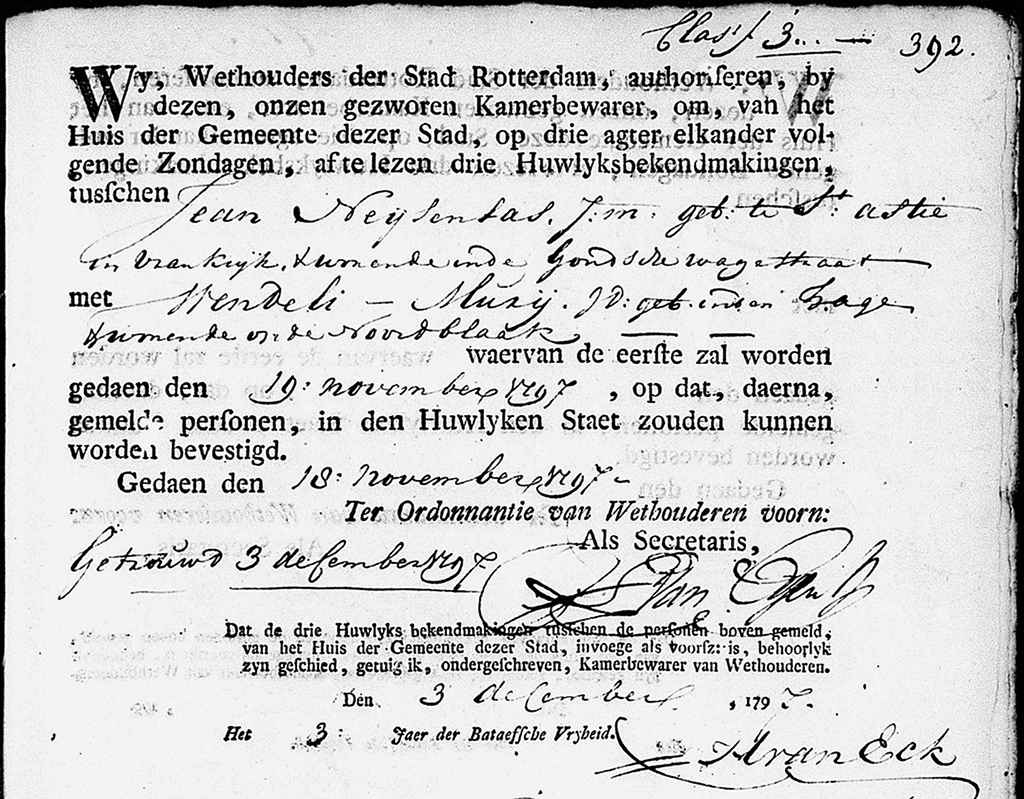 Class 3... — 392.
Wy, Wethouders der Stad Rotterdam, authoriſeren, by
dezen, onzen gezworen Kamerbewarer, om, van het
Huis der Gemeente dezer Stad, op drie agter elkander vol-
gende Zondagen, af te lezen drie Huwlyksbekendmakingen,
tusſchen Jean Neysensas. J:m: geb: te St: astie
in vrankryk, & wonende inde Goudsche wagestraat
met Wendeli - Muzij. JD: geb: in den Hage
& wonende op de Noordblaak — —
waervan de eerſte zal worden
gedaen den 19: november 1797, op dat, daerna,
gemelde perſonen, in den Huwlyken Staet zouden kunnen
worden bevestigd.
Gedaen den 18: november 1797 -
Ter Ordonnantie van Wethouderen voorn:
Als Secretaris,
Getrouwd 3 december 1797
Van
Dat de drie Huwlyks bekendmakingen tusſchen de perſonen boven gemeld,
van het Huis der Gemeente dezer Stad, invoege als voorſz: is, behoorlyk
zyn geſchied, getuig ik, ondergeſchreven, Kamerbewarer van Wethouderen.
Den 3 december, 1797.
Het 3: Jaer der Bataefſche Vryheid.
H van Eck